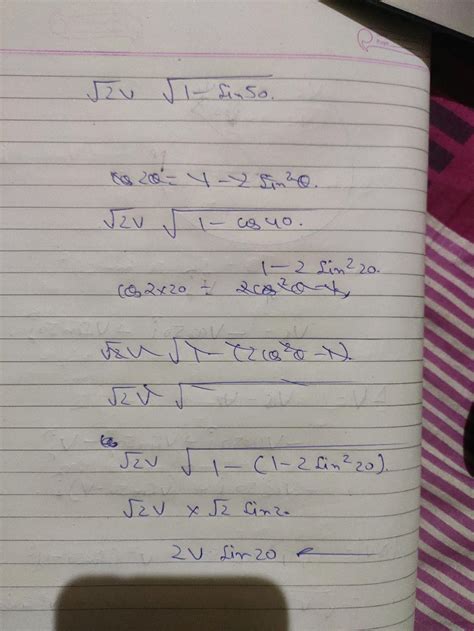 √2v √1 - sin50.
cos2θ = 1 - 2 sin²θ.
√2v √1 - cos40.
1 - 2 sin²20.
cos2×20 = 2cos²θ - 1
√2v √1 - (2cos²θ - 1).
√2v √
√2v √1 - (1 - 2 sin²20)
√2v × √2 sin20
2v sin20 ←